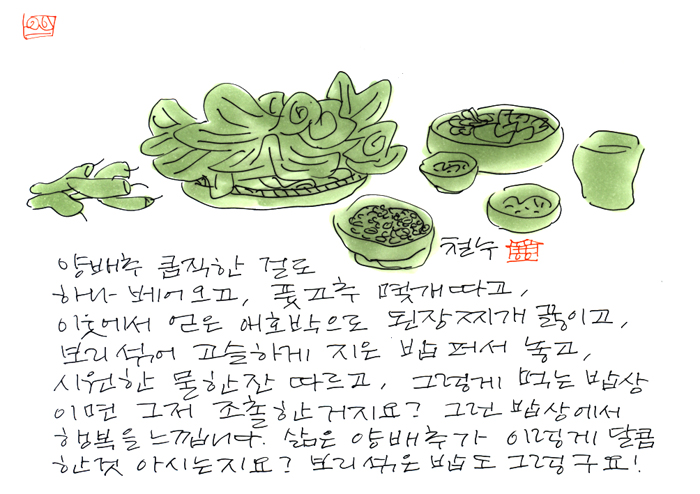 철수
양배추 큼직한 걸로
하나 베어오고, 풋고추 몇개 따고,
이웃에서 얻은 애호박으로 된장찌개 끓이고,
보리섞어 고슬하게 지은 밥 퍼서 놓고,
시원한 물한잔 따르고, 그렇게 먹는 밥상
이면 그저 조촐한거지요? 그런 밥상에서
행복을 느낍니다. 삶은 양배추가 이렇게 달콤
한것 아시는지요? 보리섞은 밥도 그렇구요!